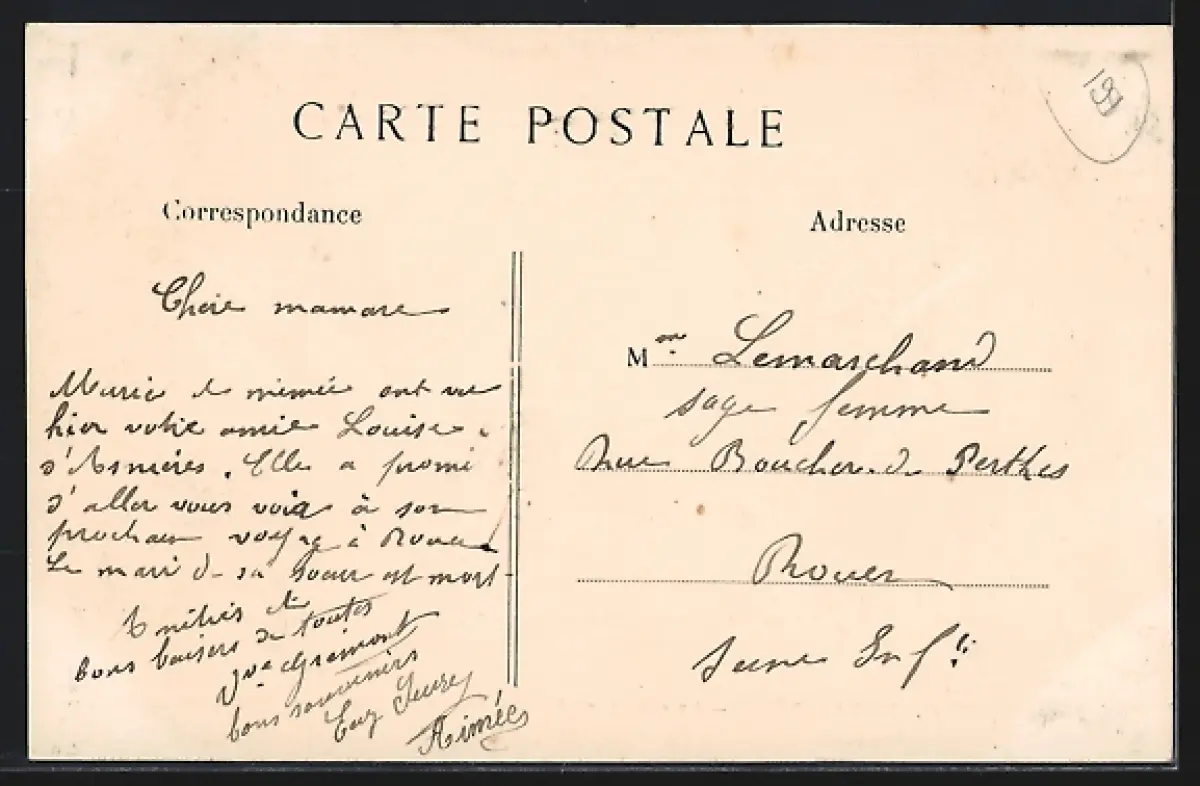 199
CARTE POSTALE
Correspondance
Adresse
Chère maman
Marie et mimie ont vu
hier votre amie Louise
d'Asnières. Elle a promi
d'aller vous voir à son
prochain voyage à Rouen
Le mari de sa soeur est mort
bons baisers de toutes
Vve Grimont
bons souvenirs
Aimée
Mme Lemarchand
sage femme
Rue Boucher de Perthes
Rouen
Seine Infre